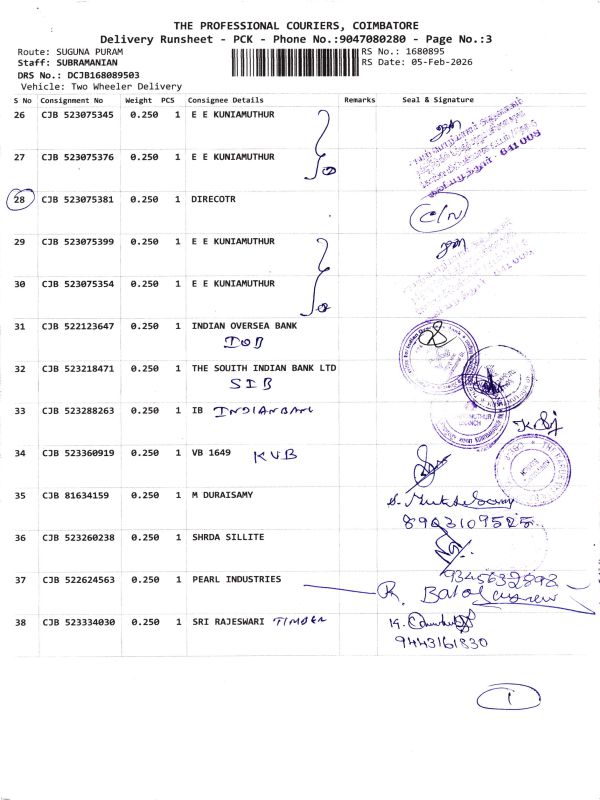 THE PROFESSIONAL COURIERS, COIMBATORE
Delivery Runsheet - PCK - Phone No.:9047080280 - Page No.:3
Route: SUGUNA PURAM RS No.: 1680895
Staff: SUBRAMANIAN RS Date: 05-Feb-2026
DRS No.: DCJB168089503
Vehicle: Two Wheeler Delivery
S No Consignment No Weight PCS Consignee Details Remarks Seal & Signature
26 CJB 523075345 0.250 1 E E KUNIAMUTHUR
27 CJB 523075376 0.250 1 E E KUNIAMUTHUR
641 008
28 CJB 523075381 0.250 1 DIRECOTR C/N
29 CJB 523075399 0.250 1 E E KUNIAMUTHUR
30 CJB 523075354 0.250 1 E E KUNIAMUTHUR
641 008
31 CJB 522123647 0.250 1 INDIAN OVERSEA BANK
IOB
32 CJB 523218471 0.250 1 THE SOUITH INDIAN BANK LTD
SIB
33 CJB 523288263 0.250 1 IB INDIAN BANK
34 CJB 523360919 0.250 1 VB 1649 KVB
35 CJB 81634159 0.250 1 M DURAISAMY
8903109525
36 CJB 523260238 0.250 1 SHRDA SILLITE
9345632892
37 CJB 522624563 0.250 1 PEARL INDUSTRIES R.
38 CJB 523334030 0.250 1 SRI RAJESWARI TIMBER
9443161830
1